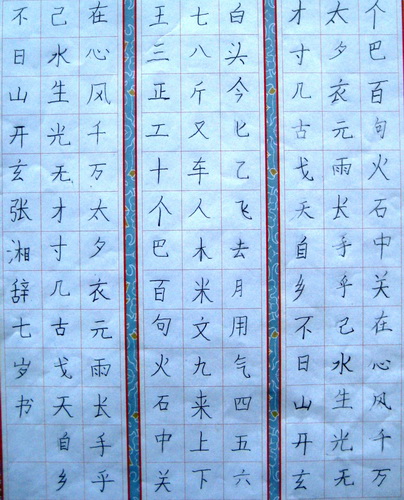 个巴百句火石中关在心风千万
太夕衣元雨长手乎己水生光无
才寸几古戈天自乡不日山开玄
白头今匕乙飞去月用气四五六
七八斤又车人木米文九来上下
王三正工十个巴百句火石中关
在心风千万太夕衣元雨长手乎
己水生光无才寸几古戈天自乡
不日山开玄张湘辞七岁书